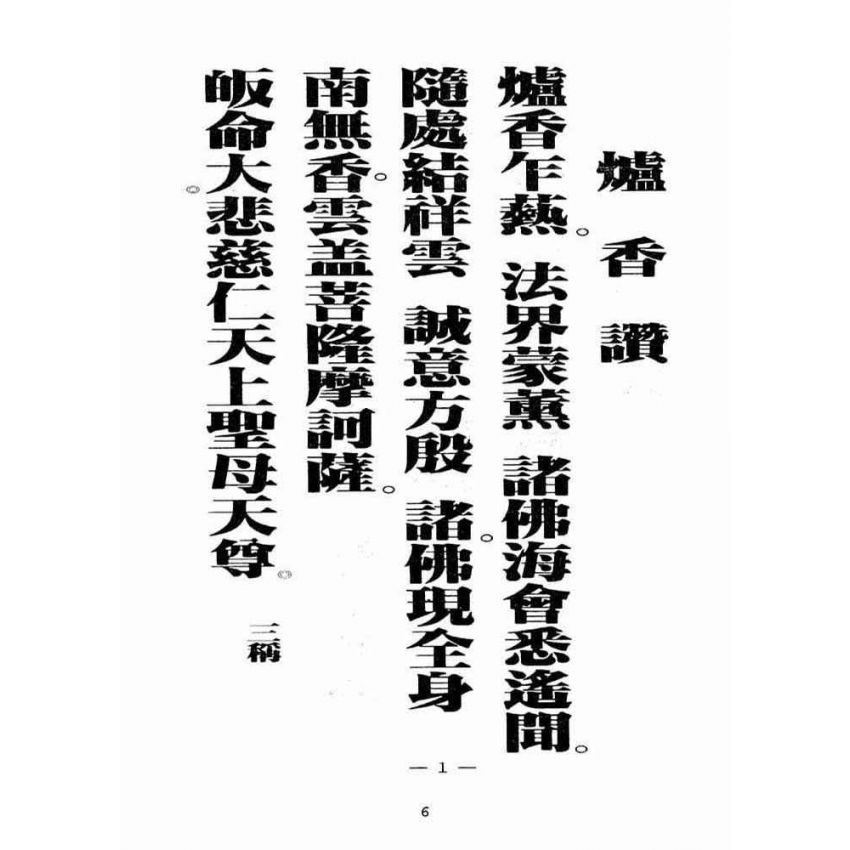 爐香讚
爐香乍爇。 法界蒙薰 諸佛海會悉遙聞。
隨處結祥雲 誠意方殷 諸。佛現全身
南無香。雲盖菩隆摩訶薩。
皈命大◎悲慈仁天上聖母天尊◎ 三稱
— 1 —
6